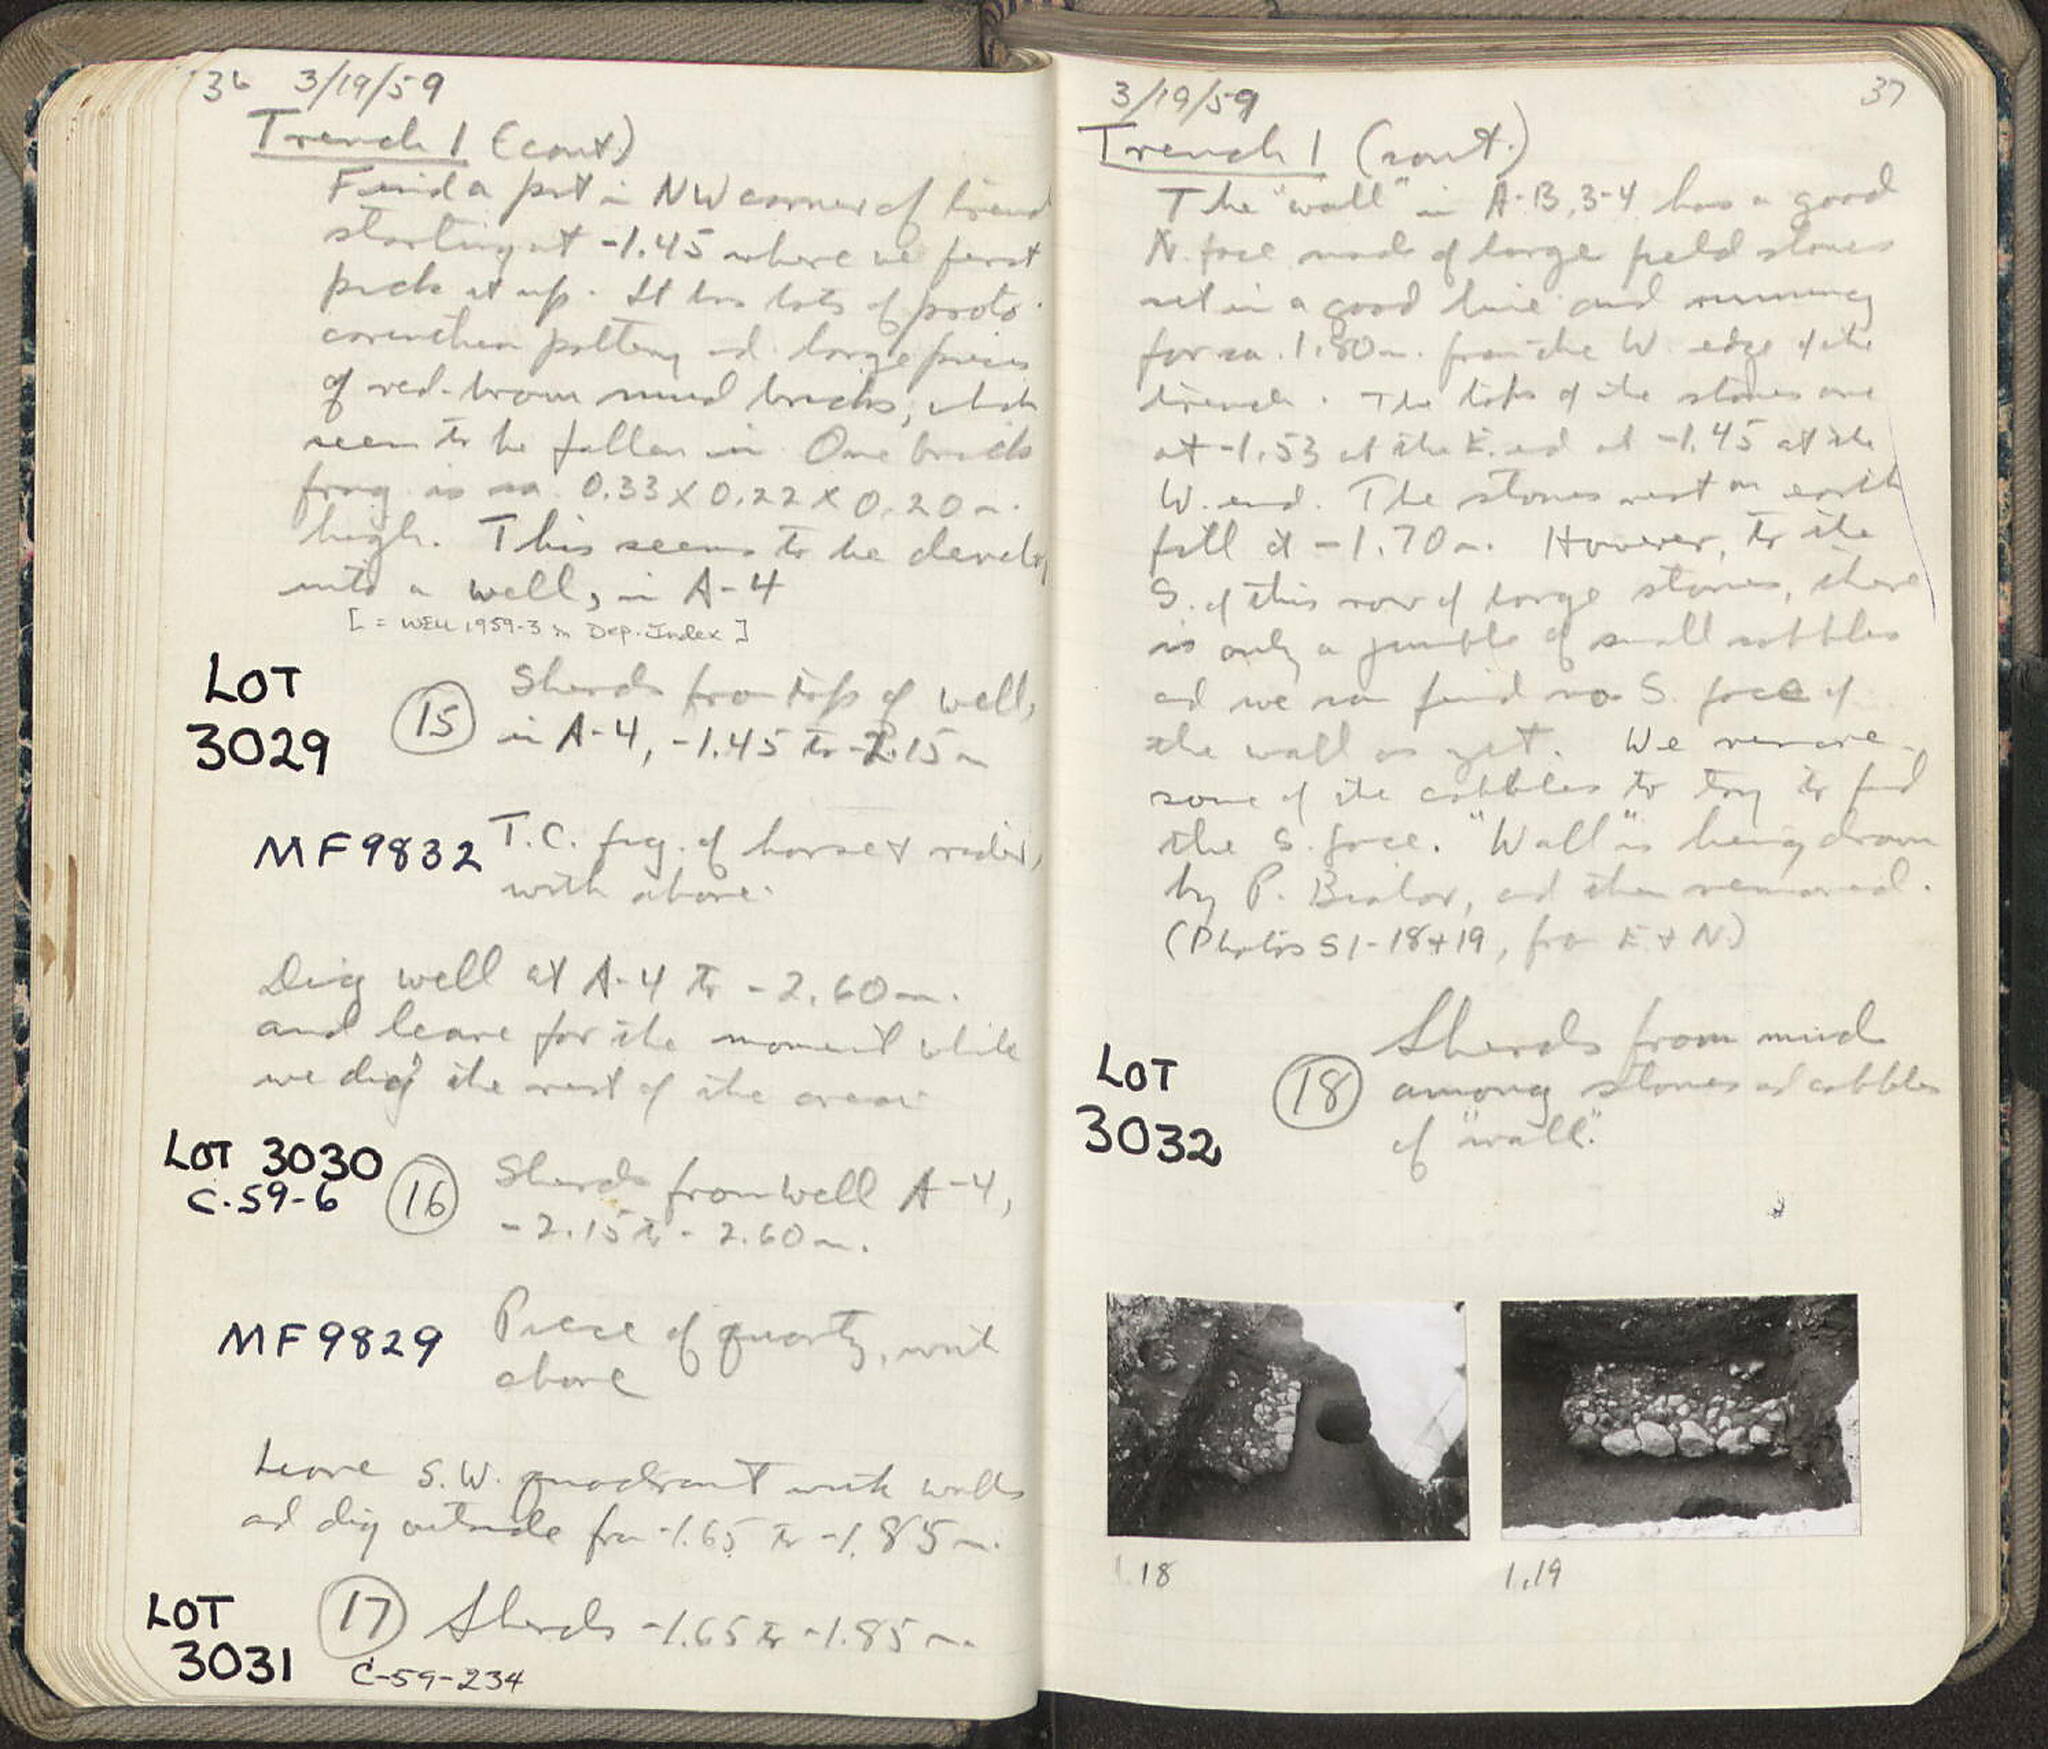 36 3/19/59
Trench 1 (cont.)
Find a pit in NW corner of trench
starting at -1.45 where we first
pick it up. It has lots of proto-
corinthian pottery and large pieces
of red-brown mud bricks, which
seem to be fallen in. One brick
frag. is ca. 0.33 x 0.22 x 0.20 m.
high. This seems to be develop
into a well, in A-4
[= WELL 1959-3 in Dep. Index]
LOT 3029
(15) Sherds from top of well,
in A-4, -1.45 to -2.15 m
MF 9832 T.C. fig. of horse + rider,
with above.
Dig well at A-4 to -2.60 m.
and leave for the moment while
we dig the rest of the area.
LOT 3030
C-59-6
(16) Sherds from well A-4,
-2.15 to -2.60 m.
MF 9829 Piece of quartz, with
above
Leave S.W. quadrant with walls
and dig outside from -1.65 to -1.85 m.
LOT 3031
(17) Sherds -1.65 to -1.85 m.
C-59-234
3/19/59 37
Trench 1 (cont.)
The "wall" in A-B, 3-4 has a good
N. face made of large field stones
set in a good line and running
for ca. 1.80 m. from the W. edge of the
trench. The tops of the stones are
at -1.53 at the E. end and -1.45 at the
W. end. The stones rest on earth
fill at -1.70 m. However, to the
S. of this row of large stones, there
is only a jumble of small cobbles
and we can find no S. face of
the wall as yet. We remove
some of the cobbles to try to find
the S. face. "Wall" is being drawn
by P. Bialor, and then removed.
(Photos S1-18+19, from E + N.)
LOT 3032
(18) Sherds from mud
among stones and cobbles
of "wall".
1.18
1.19